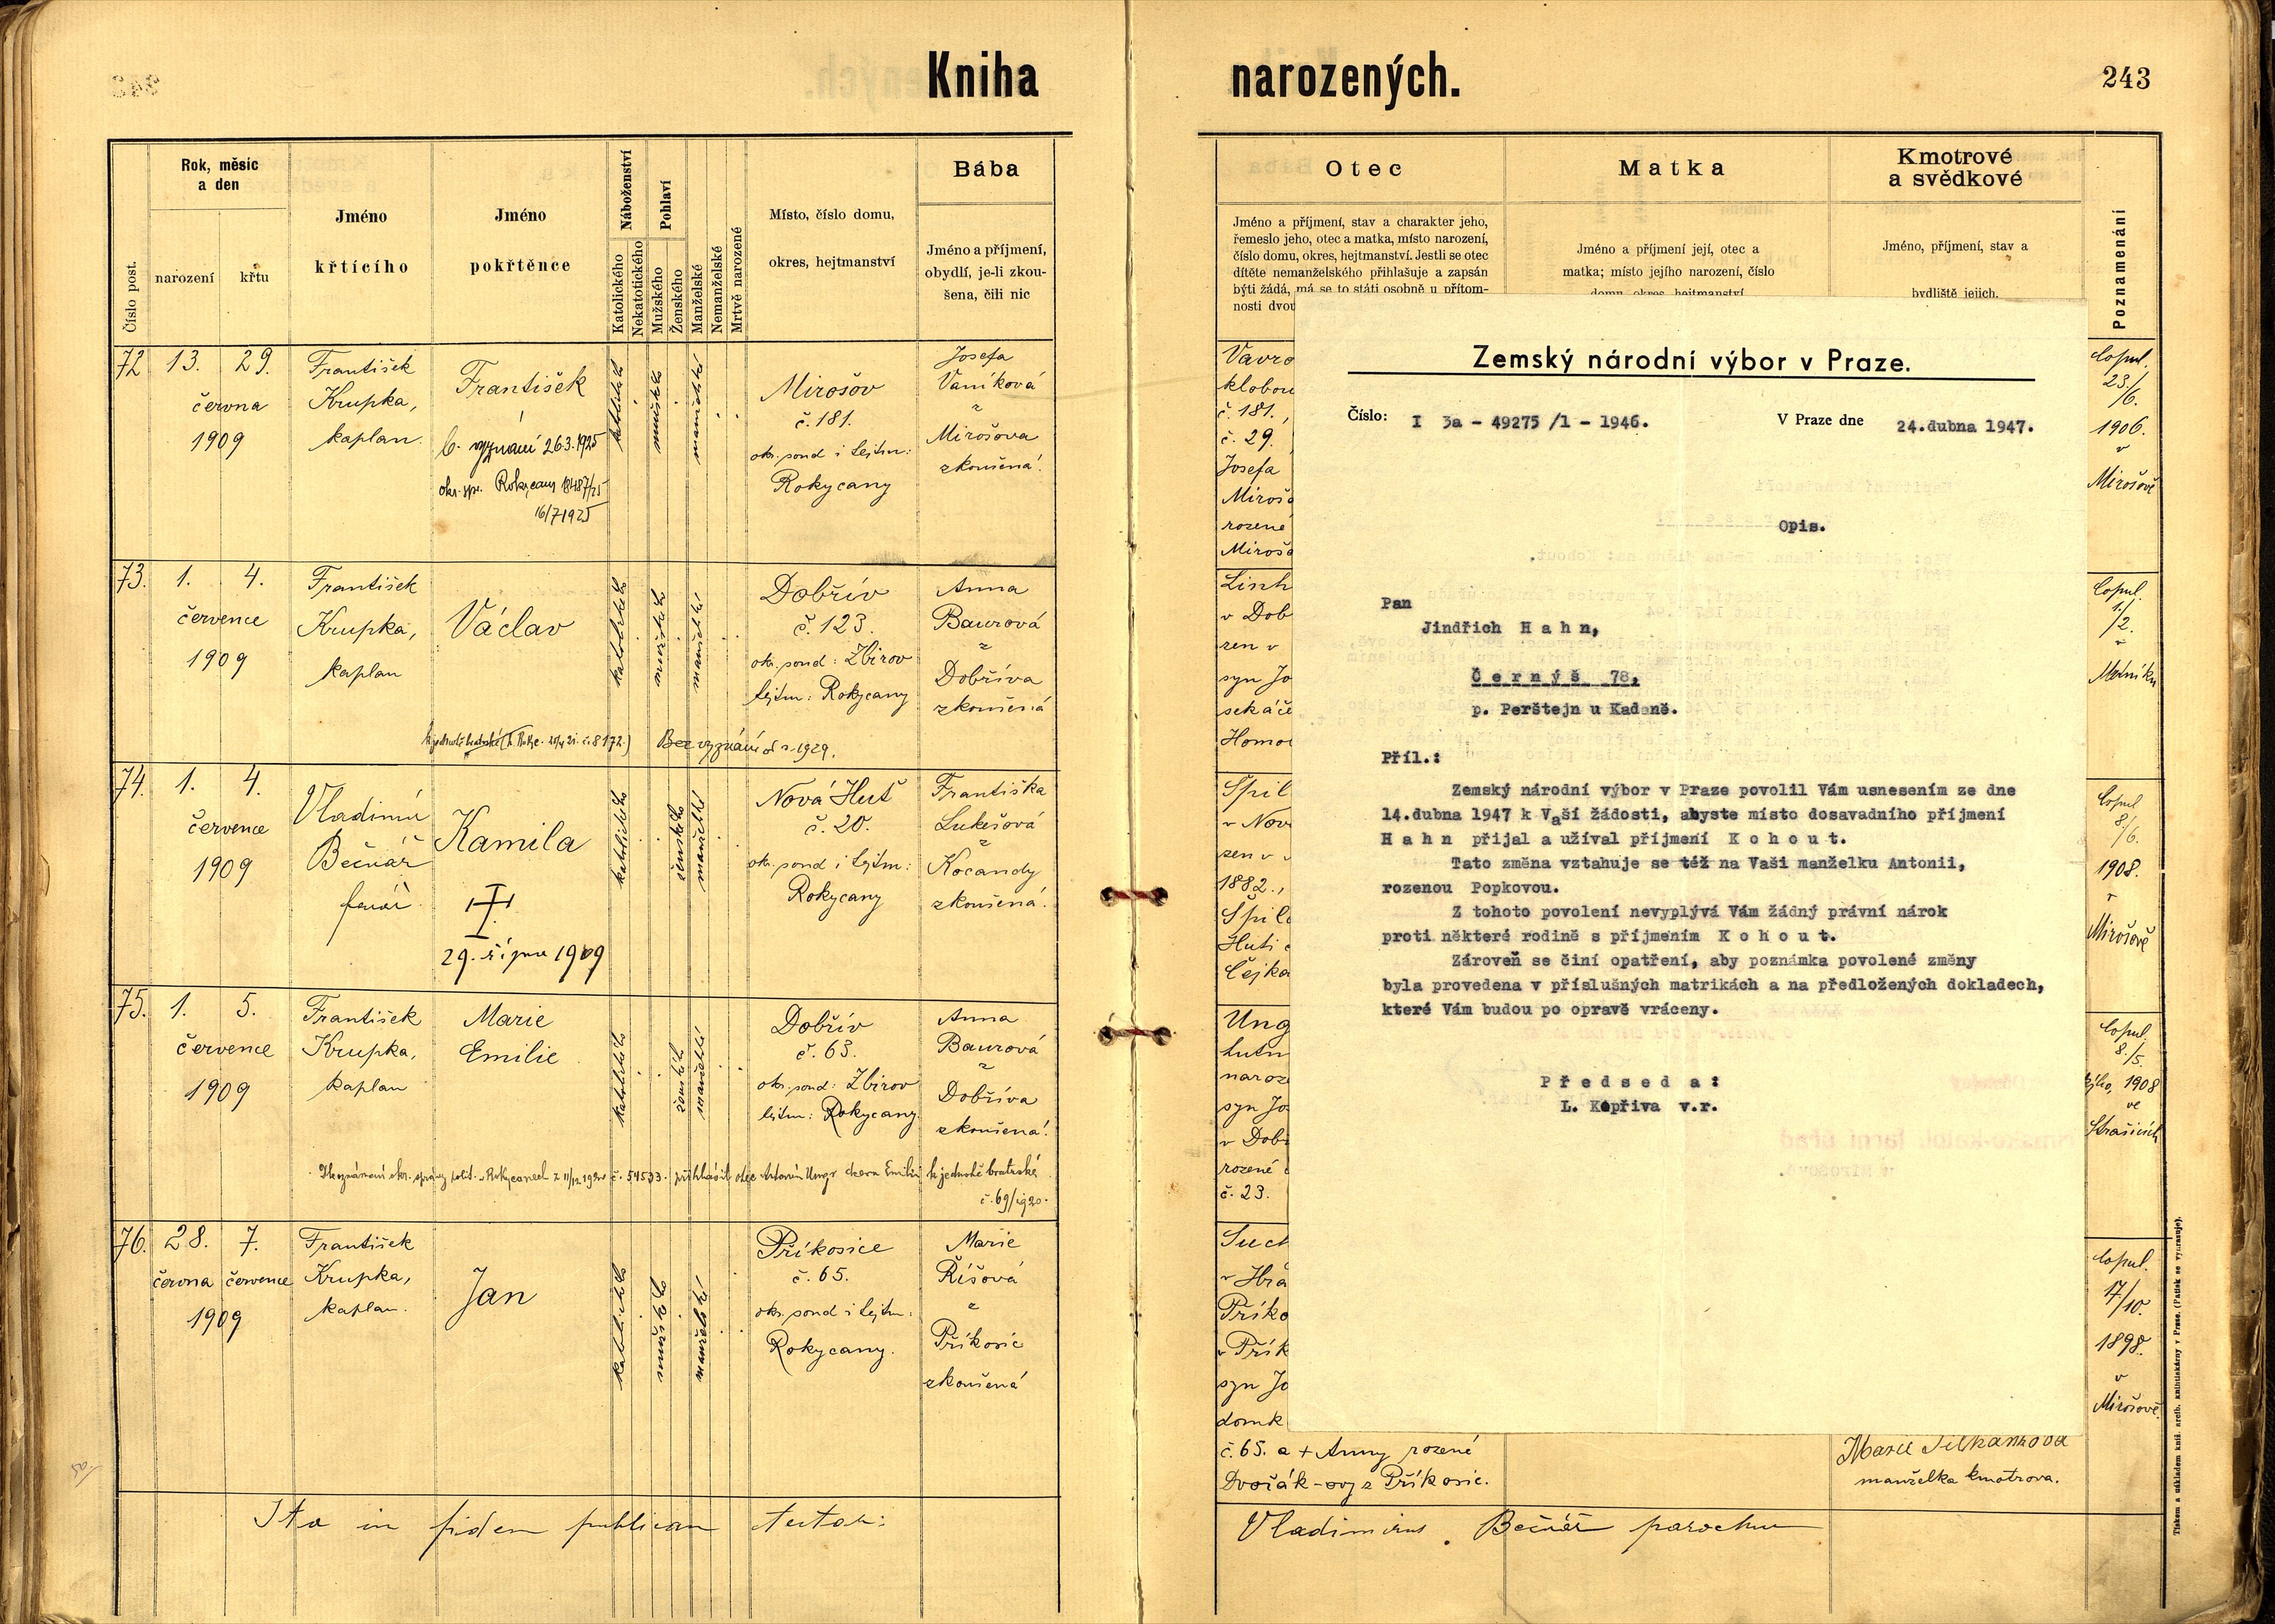 Kniha narozených.
243
Číslo post.
Rok, měsíc
a den
narození
křtu
Jméno
křtícího
Jméno
pokřtěnce
Náboženství
Katolického
Nekatotického
Pohlaví
Mužského
Ženského
Manželské
Nemanželské
Mrtvě narozené
Místo, číslo domu,
okres, hejtmanství
Bába
Jméno a příjmení,
obydlí, je-li zkou-
šena, čili nic
Otec
Jméno a příjmení, stav a charakter jeho,
řemeslo jeho, otec a matka, místo narození,
číslo domu, okres, hejtmanství. Jestli se otec
dítěte nemanželského přihlašuje a zapsán
býti žádá, má se to státi osobně u přítom-
nosti dvou
Matka
Jméno a příjmení její, otec a
matka; místo jejího narození, číslo
domu, okres, hejtmanství
Kmotrové
a svědkové
Jméno, příjmení, stav a
bydliště jejich.
Poznamenání
72 13. 29.
června
1909
František
Krupka,
kaplan.
František
b. vyznání 26.3.1925
okr. spr. Rokycany 18487/25
16/7 1925
katolického
mužského
manželské
Mirošov
č. 181.
okr. soud i hejtm:
Rokycany
Josefa
Vaníková
z
Mirošova
zkoušená.
Vavro
klobou
č. 181.,
č. 29.
Josefa
Miroš
rozené
Miroš
Copul.
23/
/6.
1906.
v
Mirošově
73. 1. 4.
července
1909
František
Krupka,
kaplan
Václav
katolického
mužského
manželské
Dobřív
č. 123.
okr. soud: Zbirov
hejtm: Rokycany
Anna
Baurová
z
Dobříva
zkoušená
Bez vyznání od r. 1929.
Linh
v Dob
zen v
syn Jo
sekáče
Homol
Copul.
1/
/2.
v
74. 1. 4.
července
1909
Vladimír
Bečvář
farář
Kamila
29. října 1909
katolického
ženského
manželské
Nová Huť
č. 20.
okr. soud i hejtm:
Rokycany
Františka
Lukešová
z
Kocandy
zkoušená.
Špil
v Nov
zen v
1882.,
Špil
Huti
Čejka
Copul
8/6.
1908.
v
Mirošově
75. 1. 5.
července
1909
František
Krupka,
kaplan
Marie
Emilie
katolického
ženského
manželské
Dobřív
č. 63.
okr. soud: Zbirov
hejtm: Rokycany
Anna
Baurová
z
Dobříva
zkoušená.
přihlásil otec Antonín Ungr dceru Emilii k jednotě bratrské
č. 69/1920.
Ung
hutn
naroz
syn Jo
v Dob
rozené
č. 23.
Copul.
8./5.
1908
ve
Strašicích
76. 28. 7.
června července
1909
František
Krupka,
kaplan.
Jan
katolického
mužského
manželské
Příkosice
č. 65.
okr. soud i hejtm:
Rokycany.
Marie
Říšová
z
Příkosic
zkoušená
Such
v Hrá
Příko
v Přík
syn Jo
domk
č. 65. a + Anny rozené
Dvořák-ovy z Příkosic.
manželka kmotrova.
Copul.
17/10.
1898.
v
Mirošově.
Ita in fidem publicam testor:
Vladimirus Bečvář parochus
Zemský národní výbor v Praze.
Číslo: I 3a - 49275 /1 - 1946.
V Praze dne 24.dubna 1947.
Opis.
Pan
Jindřich H a h n,
Č e r n ý š 78,
p. Perštejn u Kadaně.
Příl.:
Zemský národní výbor v Praze povolil Vám usnesením ze dne
14.dubna 1947 k Vaší žádosti, abyste místo dosavadního příjmení
H a h n přijal a užíval příjmení K o h o u t.
Tato změna vztahuje se též na Vaši manželku Antonii,
rozenou Popkovou.
Z tohoto povolení nevyplývá Vám žádný právní nárok
proti některé rodině s příjmením K o h o u t.
Zároveň se činí opatření, aby poznámka povolené změny
byla provedena v příslušných matrikách a na předložených dokladech,
které Vám budou po opravě vráceny.
P ř e d s e d a :
L. Kopřiva v.r.